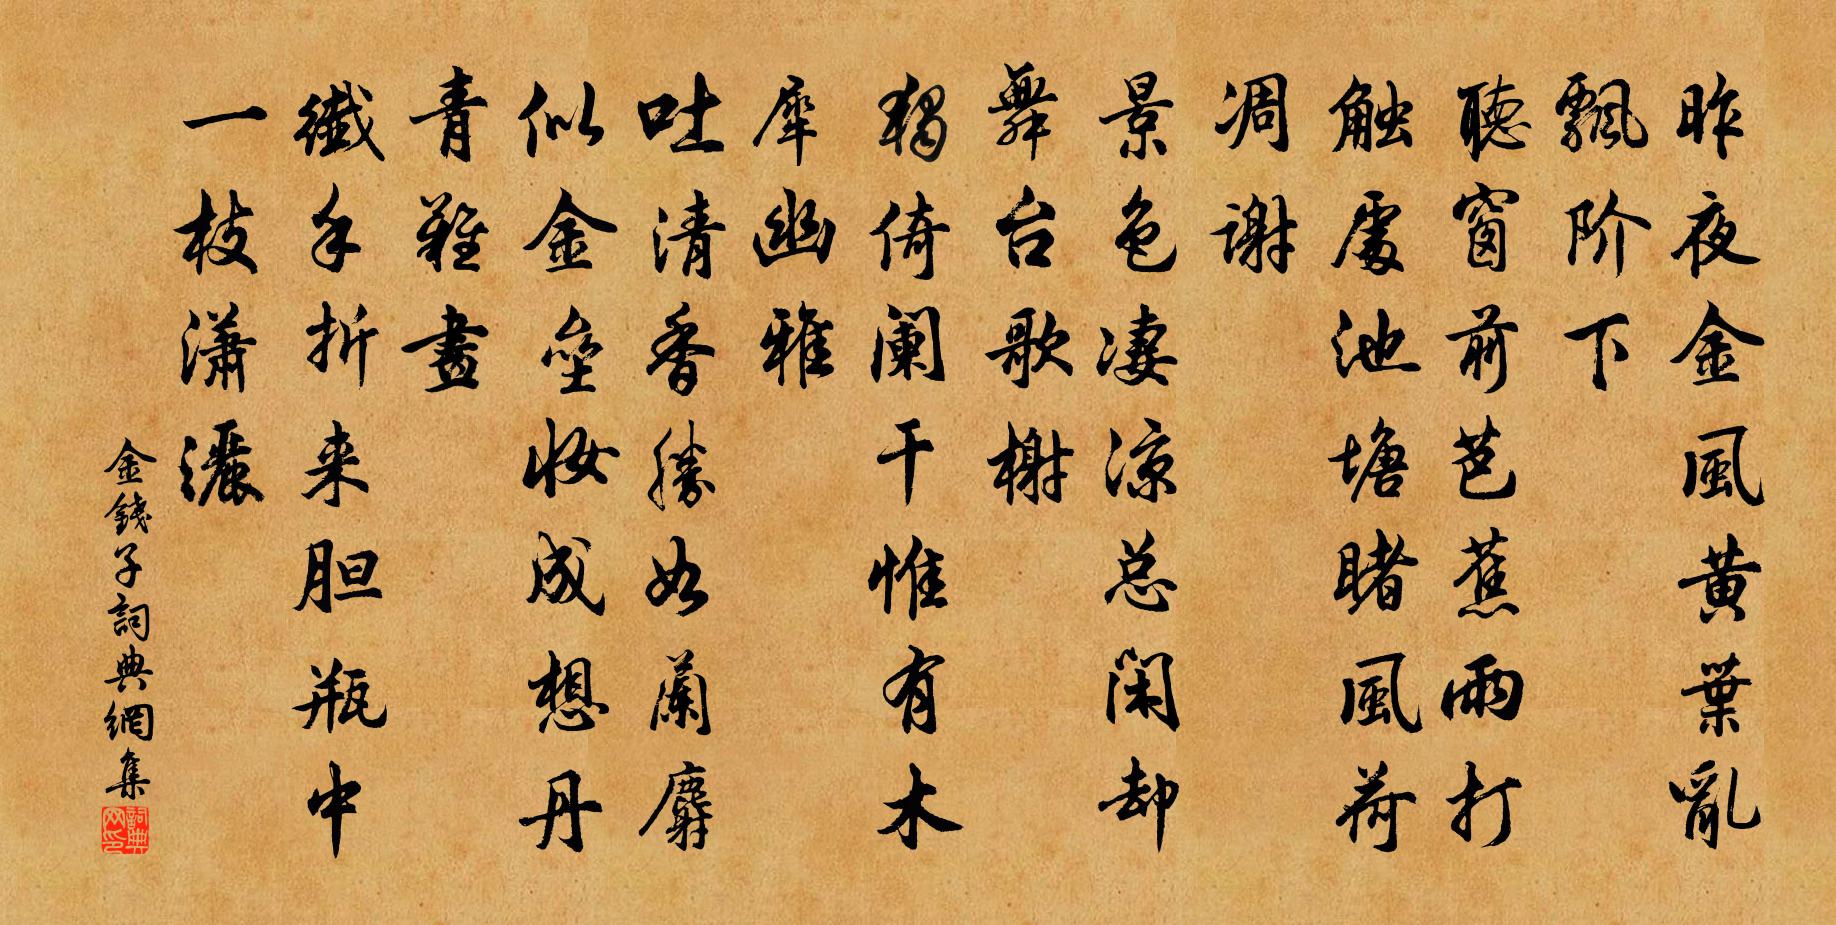 昨夜金風黄葉亂
飄阶下
聽窗前芭蕉雨打
触處池塘睹風荷
凋谢
景色凄凉总闲却
舞台歌榭
獨倚阑干惟有木
犀幽雅
吐清香勝如蘭麝
似金垒妝成想丹
青難畫
纖手折来胆瓶中
一枝潇灑
金錢子詞典網集
詞典网印